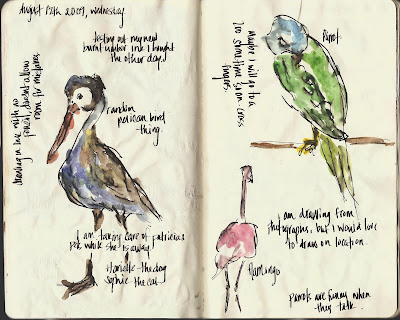 August 12th 2009, wednesday
testing out my new
burnt umber ink I bought
the other day!
drawing in ink with no
pencil, doesn't allow
room for mistakes
random
pelican bird
thing.
I am taking care of patricias
pets while she is away!
the dog
sophie the cat
Maybe I will go to a
zoo sometime soon. cross
fingers.
Parrot
I am drawing from
photographs, but I would love
to draw on location.
flamingo
Parrots are funny when
they talk.